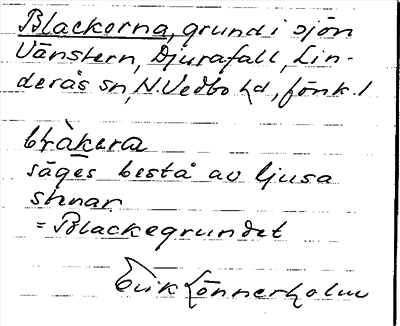 Blackorna, grund i sjön
Vänstern, Djurafall, Lin-
derås sn, N. Vedbo hd, Jönk. l
blàkera
säges bestå av ljusa
stenar
= Blackegrundet
Erik Lönnerholm